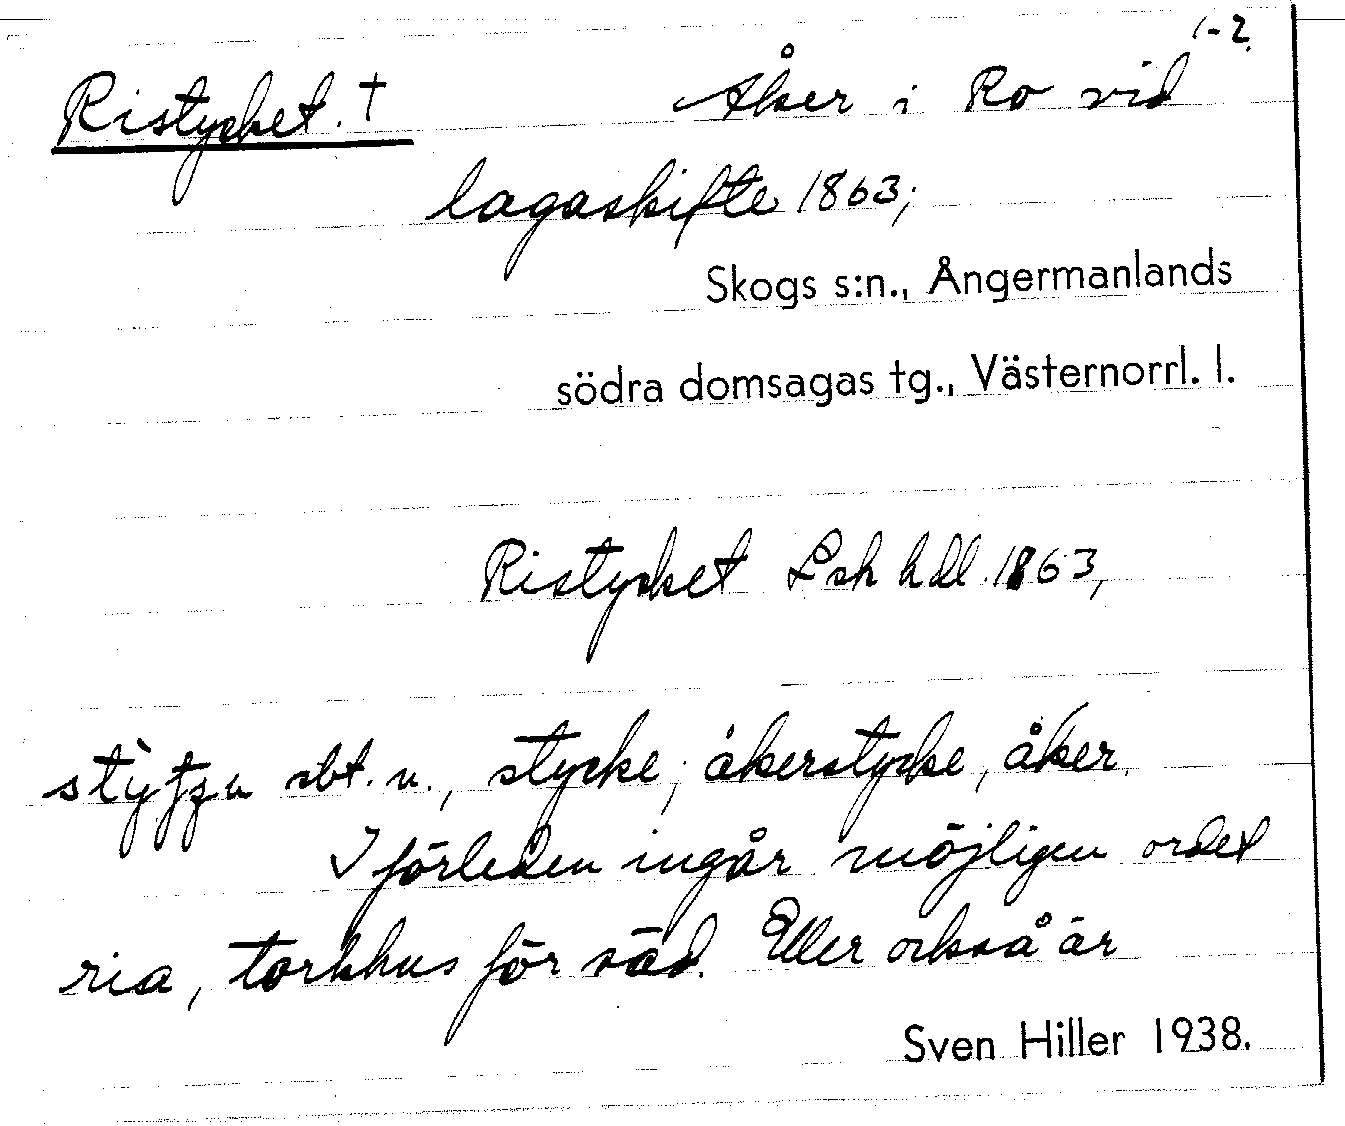 1-2.
Ristycket. † Åker i Ro vid
lagaskifte 1863;
Skogs s:n., Ångermanlands
södra domsagas tg., Västernorrl. l.
Ristycket Lsk hdl. 1863,
sbt. n., stycke; åkerstycke, åker.
I förleden ingår möjligen ordet
ria, torkhus för säd. Eller också är
Sven Hiller 1938.